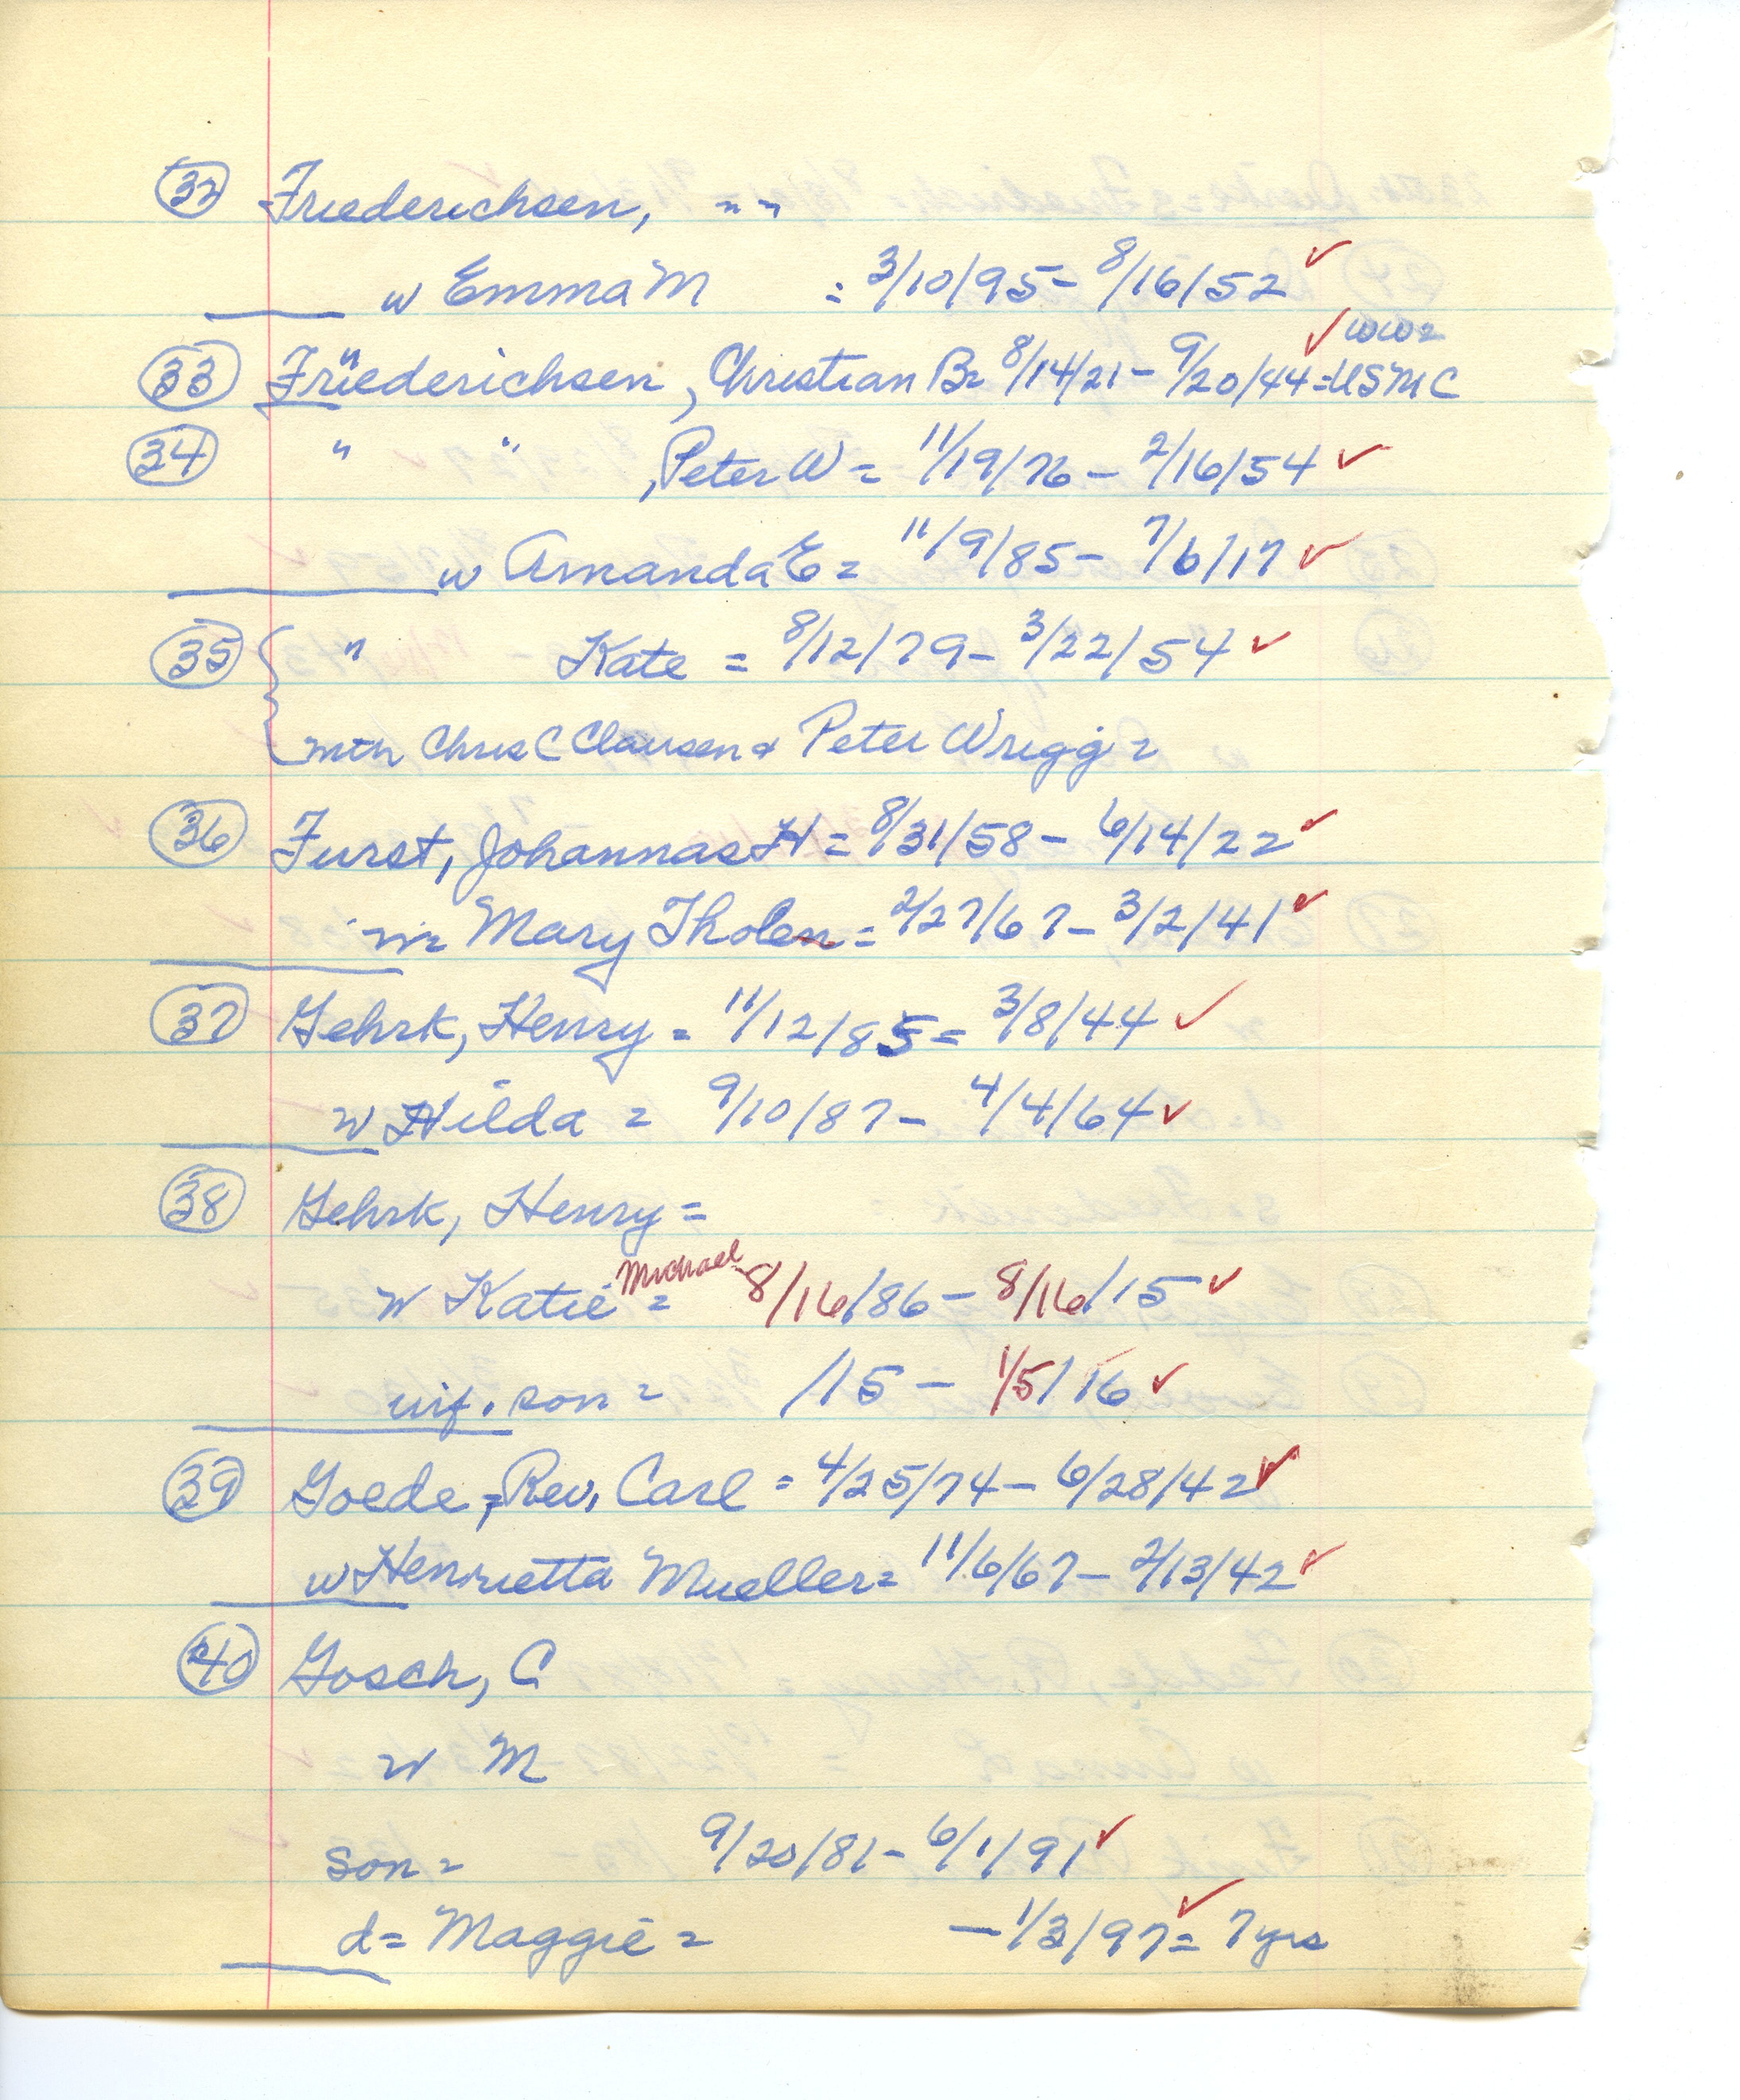 32 Friederichsen, " "
w Emma M = 3/10/95 - 8/16/52 ✓
✓ WW2
33 Friederichsen, Christian B = 8/14/21 - 9/20/44 = USMC
34 " " , Peter W = 11/19/76 - 2/16/54 ✓
w Amanda E = 11/9/85 - 7/6/17 ✓
35 " Kate = 8/12/79 - 3/22/54 ✓
mth Chris C Clausen & Peter Wrigg =
36 Furst, Johannas H = 8/31/58 - 6/14/22 ✓
Mary Tholen = 2/27/67 - 3/2/41 ✓
37 Gehrk, Henry = 11/12/85 = 3/8/44 ✓
w Hilda = 9/10/87 - 4/4/64 ✓
38 Gehrk, Henry =
w Katie Michael = 8/16/86 - 8/16/15 ✓
inf. son = /15 - 1/5/16 ✓
39 Goede, Rev. Carl = 4/25/74 - 6/28/42 ✓
w Henrietta Mueller = 11/6/67 - 2/13/42 ✓
40 Gosch, C
w M
son = 9/20/81 - 6/1/91 ✓
d = Maggie = - 1/3/97 = 7 yrs ✓